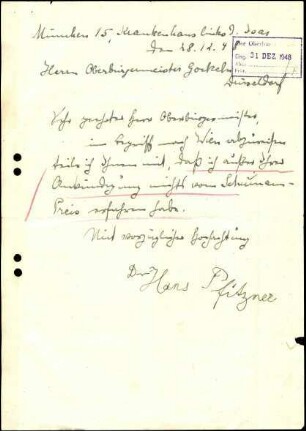 München 15, Krankenhaus links d. Isar
den 28.12.48
Der Oberbür
Eing. 31 DEZ. 1948
Herrn Oberbürgermeister Gockeln
Düsseldorf
Sehr geehrter Herr Oberbürgermeister,
im Begriff nach Wien abzureisen
teile ich Ihnen mit, daß ich außer Ihrer
Ankündigung nichts vom Schumann-
Preis erfahren habe.
Mit vorzüglicher Hochachtung
Dr Hans Pfitzner